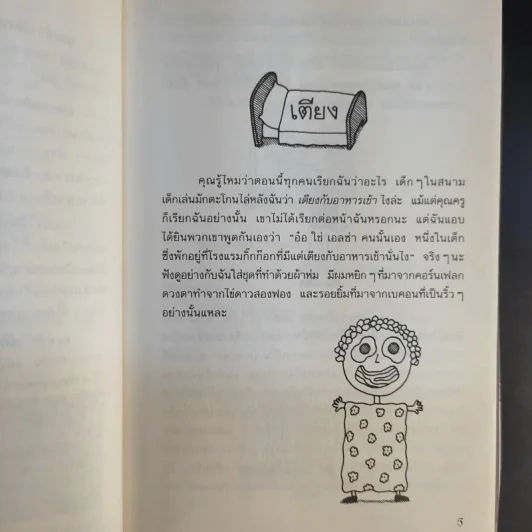 เตียง
คุณรู้ไหมว่าตอนนี้ทุกคนเรียกฉันว่าอะไร เด็กๆในสนาม
เด็กเล่นมักตะโกนไล่หลังฉันว่า เตียงกับอาหารเช้า ไงล่ะ แม้แต่คุณครู
ก็เรียกฉันอย่างนั้น เขาไม่ได้เรียกต่อหน้าฉันหรอกนะ แต่ฉันแอบ
ได้ยินพวกเขาพูดกันเองว่า "อ๋อ ใช่ เอลซ่า คนนั้นเอง หนึ่งในเด็ก
ซึ่งพักอยู่ที่โรงแรมกิ๊กก๊อกที่มีแต่เตียงกับอาหารเช้านั่นไง" จริงๆนะ
ฟังดูอย่างกับฉันใส่ชุดที่ทำด้วยผ้าห่ม มีผมหยิกๆที่มาจากคอร์นเฟลก
ดวงตาทำจากไข่ดาวสองฟอง และรอยยิ้มที่มาจากเบคอนที่เป็นริ้วๆ
อย่างนั้นแหละ
5